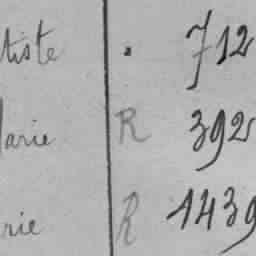 tiste . 712
Marie R 392
rie R 1439